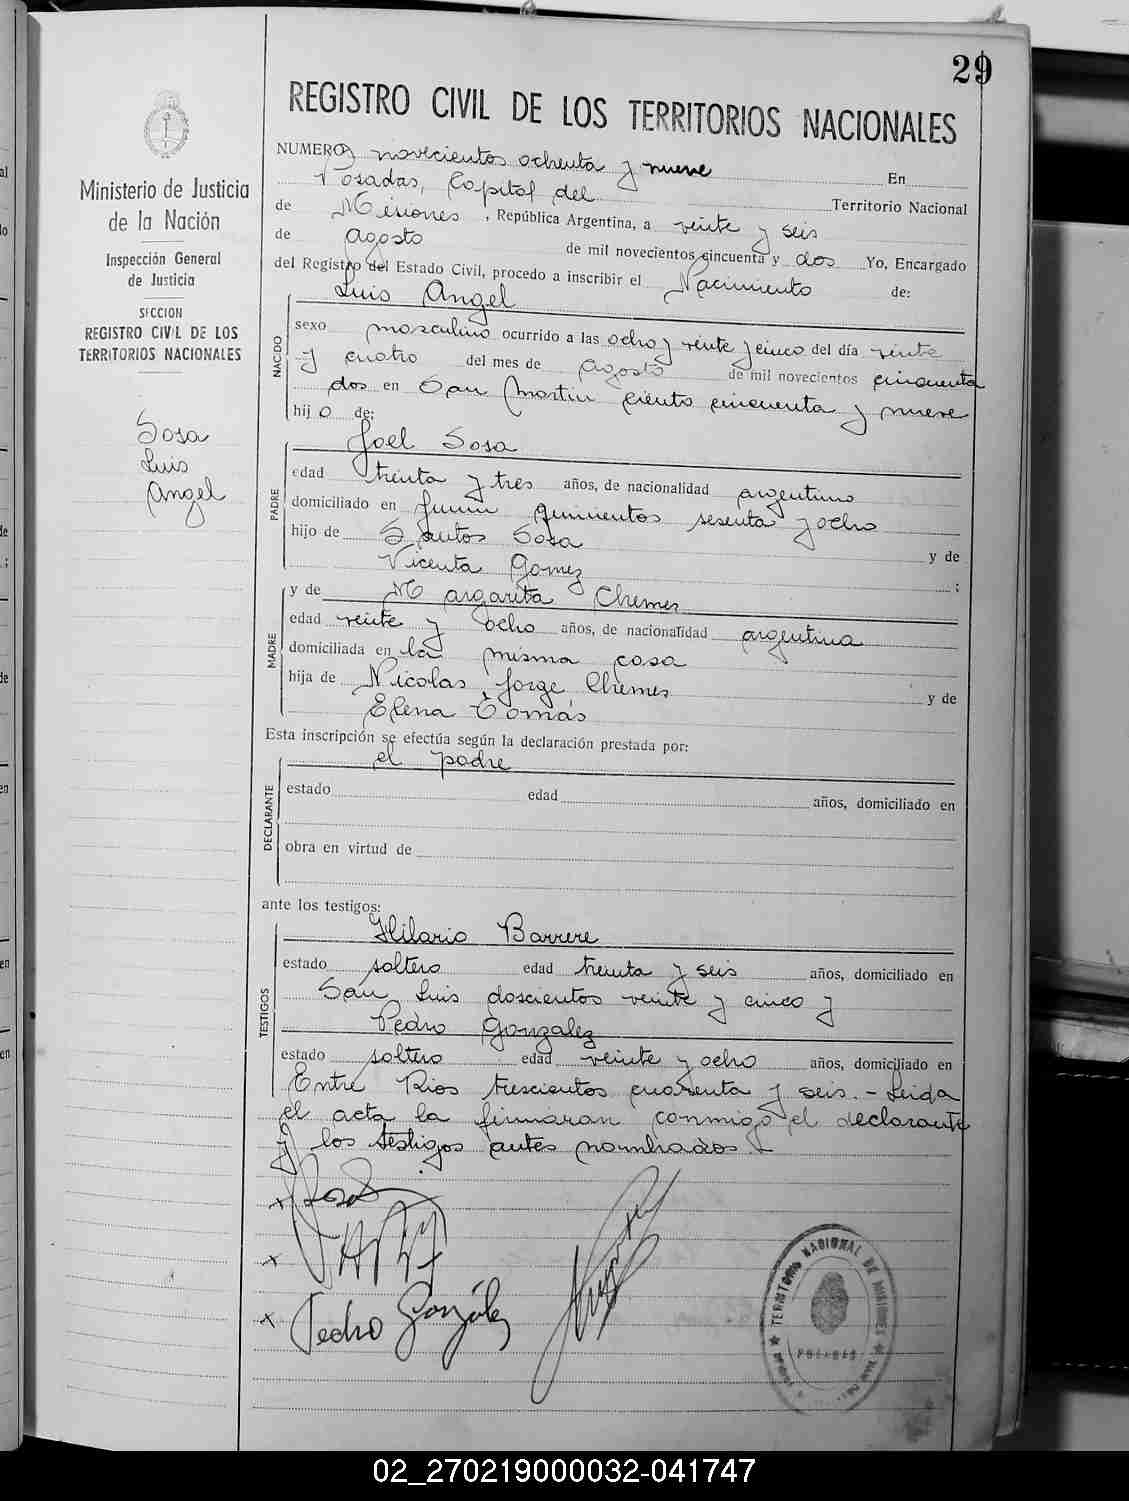 29
REGISTRO CIVIL DE LOS TERRITORIOS NACIONALES
Ministerio de Justicia
de la Nación
Inspección General
de Justicia
SECCION
REGISTRO CIVIL DE LOS
TERRITORIOS NACIONALES
Sosa
Luis
Angel
NUMERO novecientos ochenta y nueve En
Posadas, Capital del Territorio Nacional
de Misiones, República Argentina, a veinte y seis
de agosto de mil novecientos cincuenta y dos Yo, Encargado
del Registro del Estado Civil, procedo a inscribir el Nacimiento de:
Luis Angel
NACIDO
sexo masculino ocurrido a las ocho y veinte y cinco del día veinte
y cuatro del mes de agosto de mil novecientos cincuenta
dos en San Martin ciento cincuenta y nueve
hijo de:
Joel Sosa
PADRE
edad treinta y tres años, de nacionalidad argentino
domiciliado en Junin quinientos sesenta y ocho
hijo de Santos Sosa y de
Vicenta Gomez ;
y de Margarita Chemes
MADRE
edad veinte y ocho años, de nacionalidad argentina
domiciliada en la misma casa
hija de Nicolas Jorge Chemes y de
Elena Tomás
Esta inscripción se efectúa según la declaración prestada por:
el padre
DECLARANTE
estado edad años, domiciliado en
obra en virtud de
ante los testigos:
Hilario Barrere
TESTIGOS
estado soltero edad treinta y seis años, domiciliado en
San Luis doscientos veinte y cinco y
Pedro Gonzalez
estado soltero edad veinte y ocho años, domiciliado en
Entre Rios trescientos cuarenta y seis.- Leida
el acta la firmaran conmigo el declarante
y los testigos antes nombrados.-
x Sosa
x
x Pedro González
TERRITORIO NACIONAL DE MISIONES
POSADAS
02_270219000032-041747